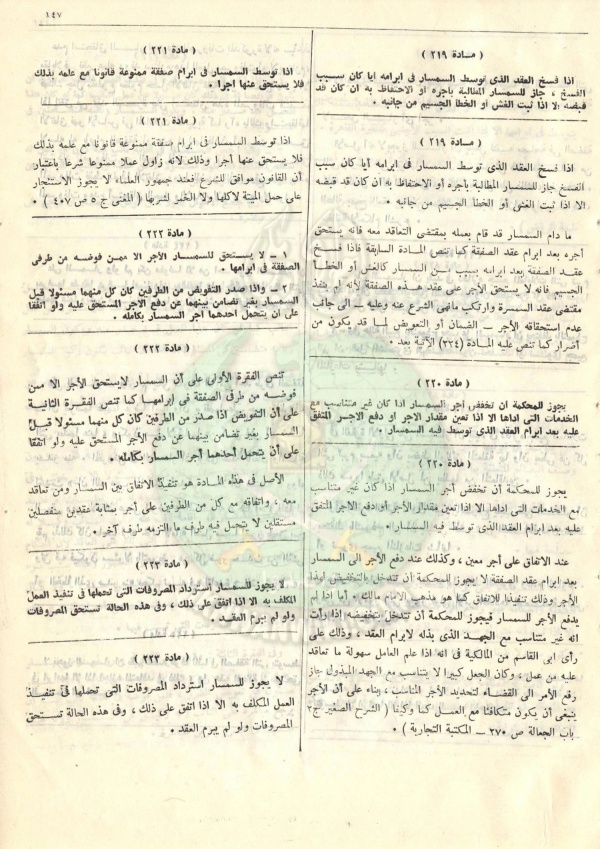 ١٤٧
( مـادة ٢١٩ )
اذا فسخ العقد الذى توسط السمسار فى ابرامه ايا كان سبب
الفسخ ، جاز للسمسار المطالبة باجره أو الاحتفاظ به ان كان قد
قبضه الا اذا ثبت الغش أو الخطا الجسيم من جانبه .
( مـادة ٢١٩ )
اذا فسخ العقد الذى توسط السمسار فى ابرامه أيا كان سبب
الفسخ جاز للسمسار المطالبة بأجره أو الاحتفاظ به ان كان قد قبضه
الا اذا ثبت الغش أو الخطأ الجسيم من جانبه .
ما دام السمسار قد قام بعمله بمقتضى التعاقد معه فانه يستحق
أجره بعد ابرام عقد الصفقة كما تنص المادة السابقة فاذا فسخ
عقـد الصفقة بعد ابرامه بسبب من السمسار كالغش أو الخطأ
الجسيم فانه لا يستحق الأجر على عقد هذه الصفقة لأنه لم ينفذ
مقتضى عقد السمسرة وارتكب مانهى الشرع عنه وعليه ــ الى جانب
عدم استحقاقه الأجر ــ الضمان أو التعويض لمـا قد يكون من
أضرار كما تنص عليه المـادة (٢٢٤) الآتية بعد .
( مادة ٢٢٠ )
يجوز للمحكمة ان تخفض أجر السمسار اذا كان غير متناسب مع
الخدمات التى اداها الا اذا تعين مقدار الاجر او دفع الاجـر المتفق
عليه بعد ابرام العقد الذى توسط فيه السمسار .
( مادة ٢٢٠ )
يجوز للمحكمة أن تخفض أجر السمسار اذا كان غير متناسب
مع الخدمات التى اداها الا اذا تعين مقدار الأجر أو ادفع الأجر المتفق
عليه بعد ابرام العقد الذى توسط فيه السمسار .
عند الاتفاق على أجر معين ، وكذلك عند دفع الأجر الى السمسار
بعد ابرام عقد الصفقة لا يجوز للمحكمة أن تتدخل بالتخفيض لهذا
الأجر وذلك تنفيذا للاتفاق كما هو مذهب الامام مالك . أما اذا لم
يدفع الأجر للسمسار فيجوز للمحكمة أن تتدخل بتخفيضه اذا رأت
انه غير متناسب مع الجهـد الذى بذله لابرام العقد ، وذلك على
رأى ابى القاسم من المالكية فى انه اذا علم العامل سهولة ما تعاقد
عليه من عمل ، وكان الجعل كبيرا لا يتناسب مع الجهد المبذول جاز
رفع الأمر الى القضـاء لتحديد الأجر المناسب ، بناء على أن الأجر
ينبغى أن يكون متكافئا مع العمـل كما وكيفا ( الشرح الصغير ج٢
باب الجعالة ص ٢٧٠ ــ المكتبة التجارية ) .
( مادة ٢٢١ )
اذا توسط السمسار فى ابرام صفقة ممنوعة قانونا مع علمه بذلك
فلا يستحق عنها أجرا .
( مادة ٢٢١ )
اذا توسط السمسار فى ابرام صفقة ممنوعة قانونا مع علمه بذلك
فلا يستحق عنها أجرا وذلك لأنه زاول عملا ممنوعا شرعا باعتبار
أن القانون موافق للشرع فعند جمهور العلمـاء لا يجوز الاستئجار
على حمل الميتة لاكلها ولا الخمر لشربها ( المغنى ج ٥ ص ٤٠٧ ) .
( مادة ٢٢٢ )
١ ــ لا يستحق للسمسار الأجر الا ممن فوضه من طرفى
الصفقة فى ابرامها .
٢ ــ واذا صدر التفويض من الطرفين كان كل منهما مسئولا قبل
السمسار بغير تضامن بينهما عن دفع الاجر المستحق عليه ولو اتفقا
على ان يتحمل احدهما أجر السمسار بكامله .
( مادة ٢٢٢ )
تنص الفقرة الأولى على أن السمسار لايستحق الأجر الا ممن
فوضه من طرفى الصفقة فى إبرامها كما تنص الفقرة الثانية
على أن التفويض اذا صدر من الطرفين كان كل منهما مسئولا قبل
السمسار بغير تضامن بينهما عن دفع الأجر المستحق عليه ولو اتفقا
على أن يتحمل أحدهما أجر السمسار بكامله .
الأصل فى هذه المـادة هو تنفيذ الاتفاق بين السمسار ومن تعاقد
معه ، واتفاقه مع كل من الطرفين على أجر بمثابة عقدين منفصلين
مستقلين لا يتحمل فيه طرف ما التزمه طرف آخر .
( مادة ٢٢٣ )
لا يجوز للسمسار استرداد المصروفات التى تحملها فى تنفيذ العمل
المكلف به الا اذا اتفق على ذلك ، وفى هذه الحالة تستحق المصروفات
ولو لم يبرم العقـد .
( مادة ٢٢٣ )
لا يجوز للسمسار استرداد المصروفات التى تحملها فى تنفيـذ
العمل المكلف به الا اذا اتفق على ذلك ، وفى هذه الحالة تستحق
المصروفات ولو لم يبرم العقد .